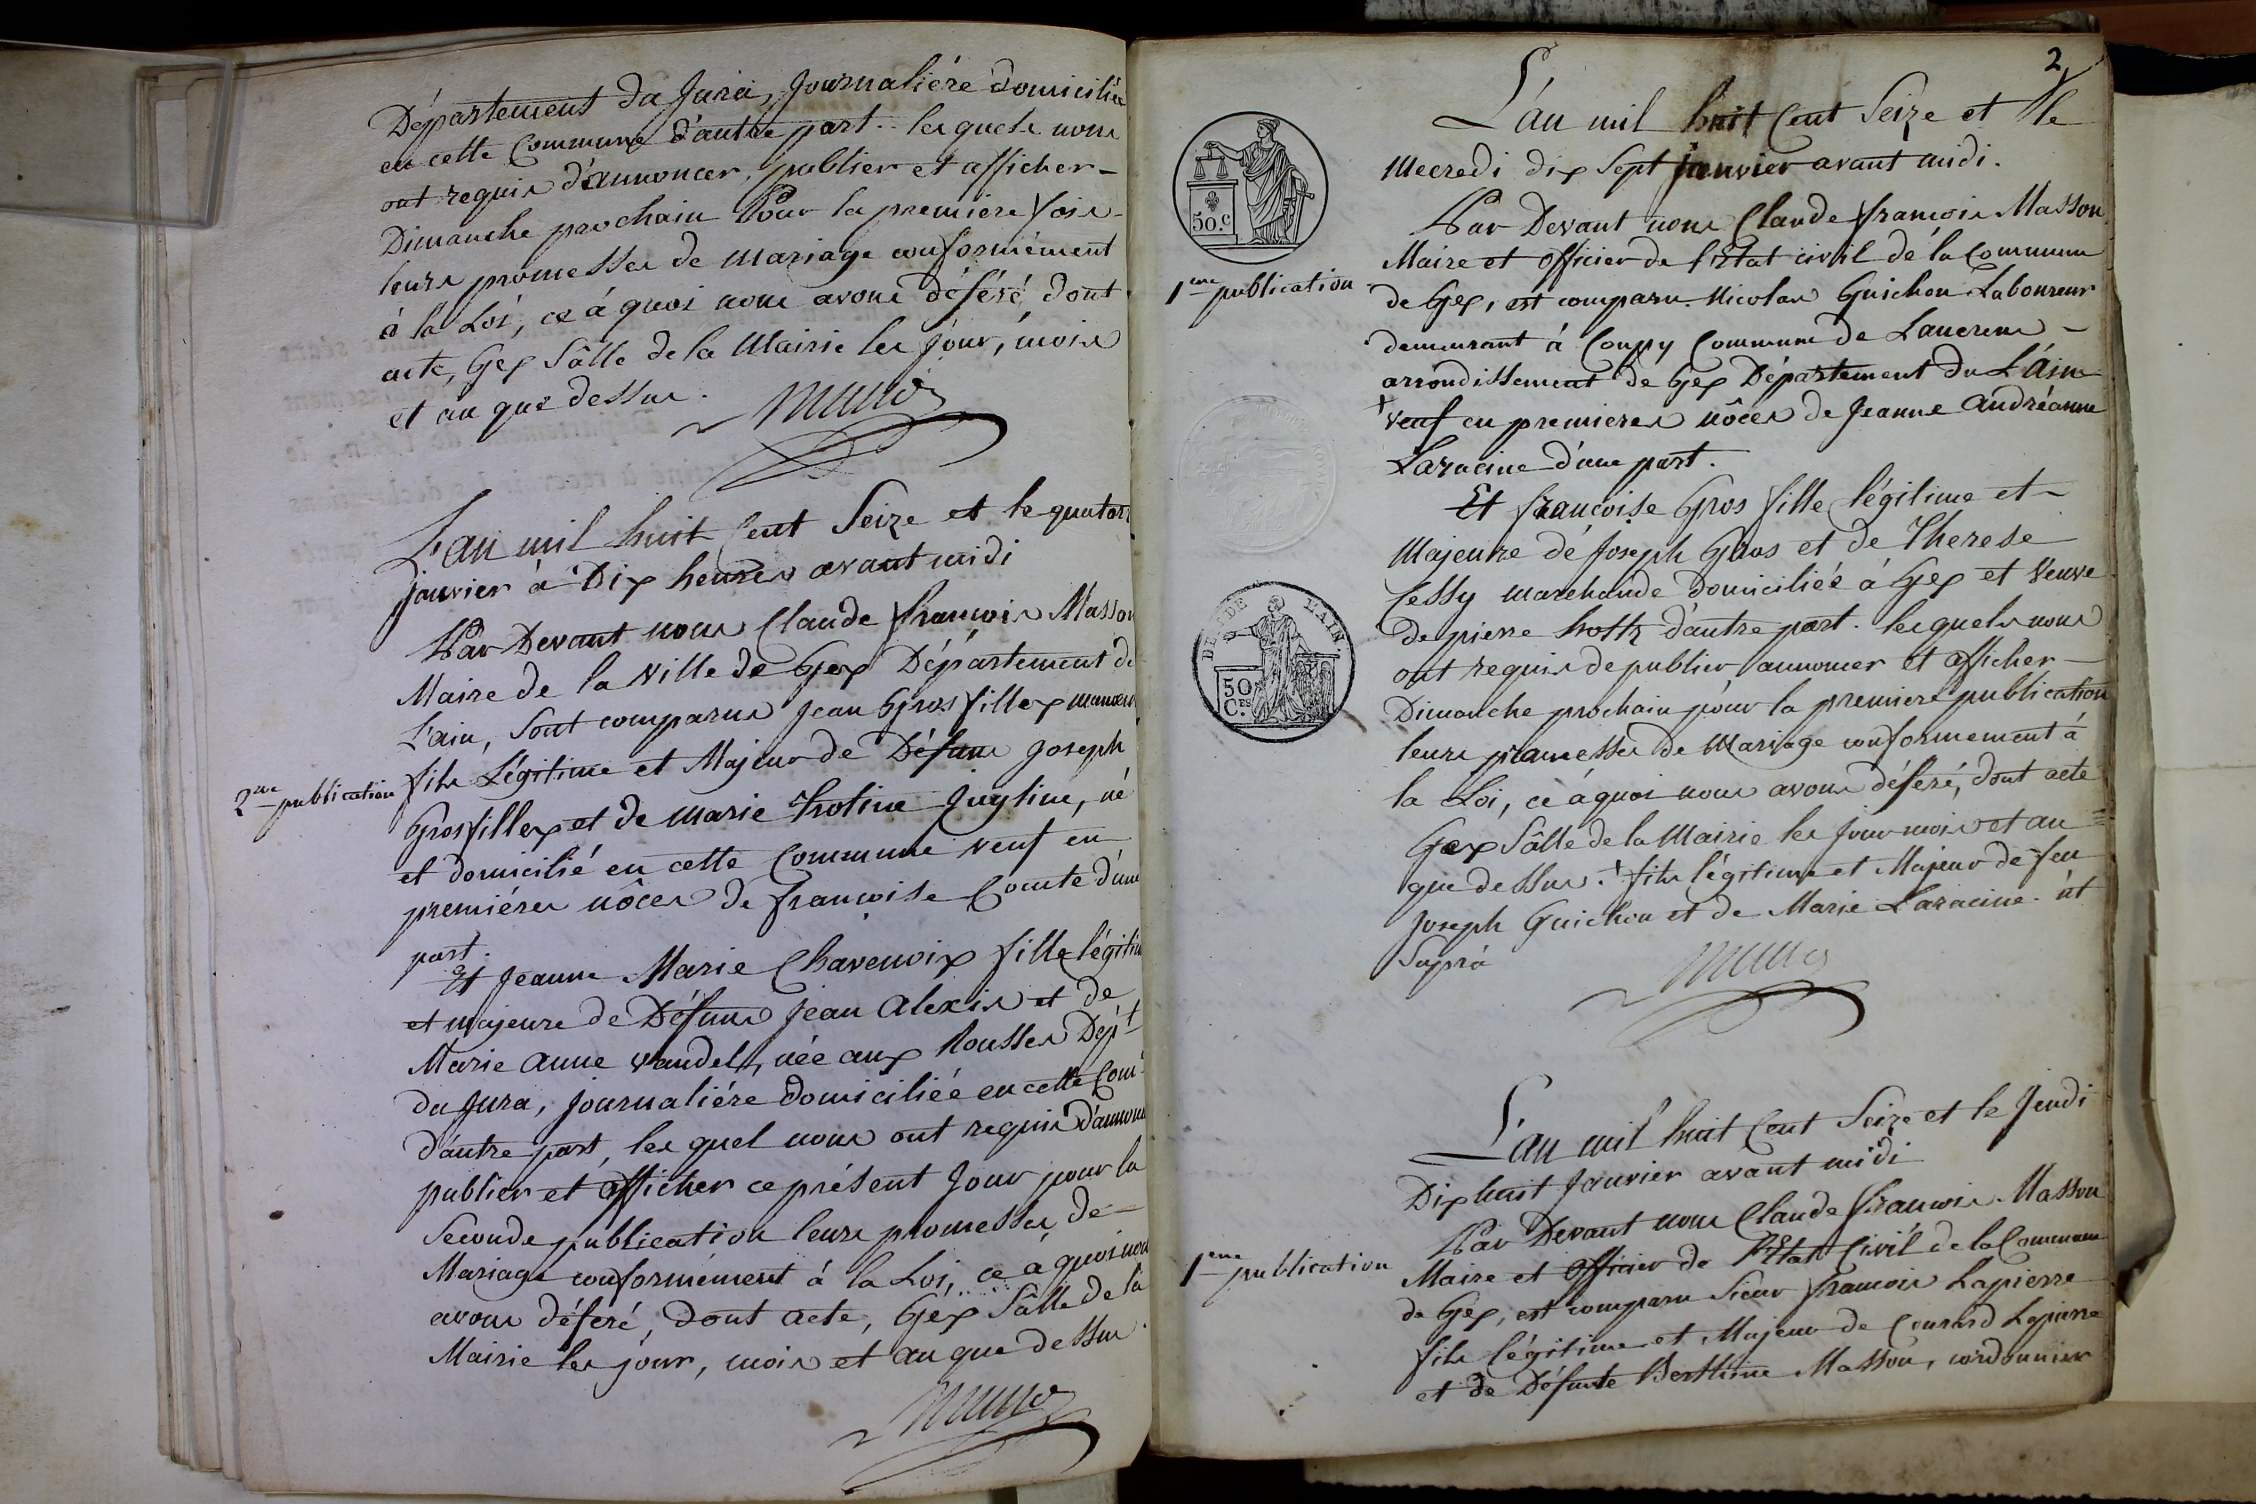 Département du Jura, Journaliére domiciliée
en cette Commune d'autre part. lesquels nous
ont requis d'annoncer, publier et afficher
Dimanche prochain Pour la premiere fois
leurs promesses de mariage conformément
à la Loi, ce à quoi nous avons déféré, dont
acte, Gex Sâlle de la Mairie les jour, mois
et an que dessus.
L'an mil huit Cent Seize et le quator
janvier à Dix heures avant midi
Par Devant nous Claude françois Masson
Maire de la Ville de Gex Département de
L'ain, sont comparus Jean Grosfillex
2me publication
fils Légitime et Majeur de Défunt Joseph
Grosfillex et de Marie Juyline, né
et domicilié en cette Commune veuf en
premiéres nôces de françoise Comte d'une
part.
Et Jeanne Marie Chavenoix fille légitim
et majeure de Défunt Jean Alexis et de
Marie Anne Vandel, née aux Rousses Dépt
du Jura, Journaliére domiciliée en cette Com
d'autre part, les quel nous ont requis d'annon
publier et afficher ce présent Jour pour la
Seconde publication leurs promesses de
Mariage conformément à la Loi, ce à quoi nous
avons déféré, Dont acte, Gex Sâlle de la
Mairie les jour, mois et an que dessus.
2
L'an mil huit Cent Seize et le
Mecredi dix Sept Janvier avant midi.
50.c
Par Devant nous Claude françois Masson
Maire et officier de l'Etat civil de la Commune
1ere publication
de Gex, est comparu Nicolas Guichon Laboureur
demeurant à Coupy Commune de Lancrens
arrondissement de Gex Département du L'Ain
+ veuf en premieres nôces de Jeanne Andréanne
Laracine d'une part.
Et françoise Gros fille légitime et
Majeure de Joseph Gros et de Therese
Cessy marchande domiciliée à Gex et Veuve
DE L'AIN.
50
C.ES
de pierre d'autre part. lesquels nous
ont requis de publier annoncer et afficher
Dimanche prochain pour la premiere publication
leurs promesses de Mariage conformement à
la Loi, ce à quoi nous avons déféré, dont acte
Gex Sâlle de la Mairie les Jour mois et an
que dessus. + fils légitime et Majeur de feu
Joseph Guichon et de Marie Laracine. ut
Suprà
L'an mil huit Cent Seize et le Jeudi
Dix huit Janvier avant midi
Par Devant nous Claude françois Masson
Maire et officier de l'Etat Civil de la Commune
1ere publication
de Gex, est comparu Sieur françois Lapierre
fils légitime et Majeur de Conrard Lapierre
et de Défunte Masson, cordonnier